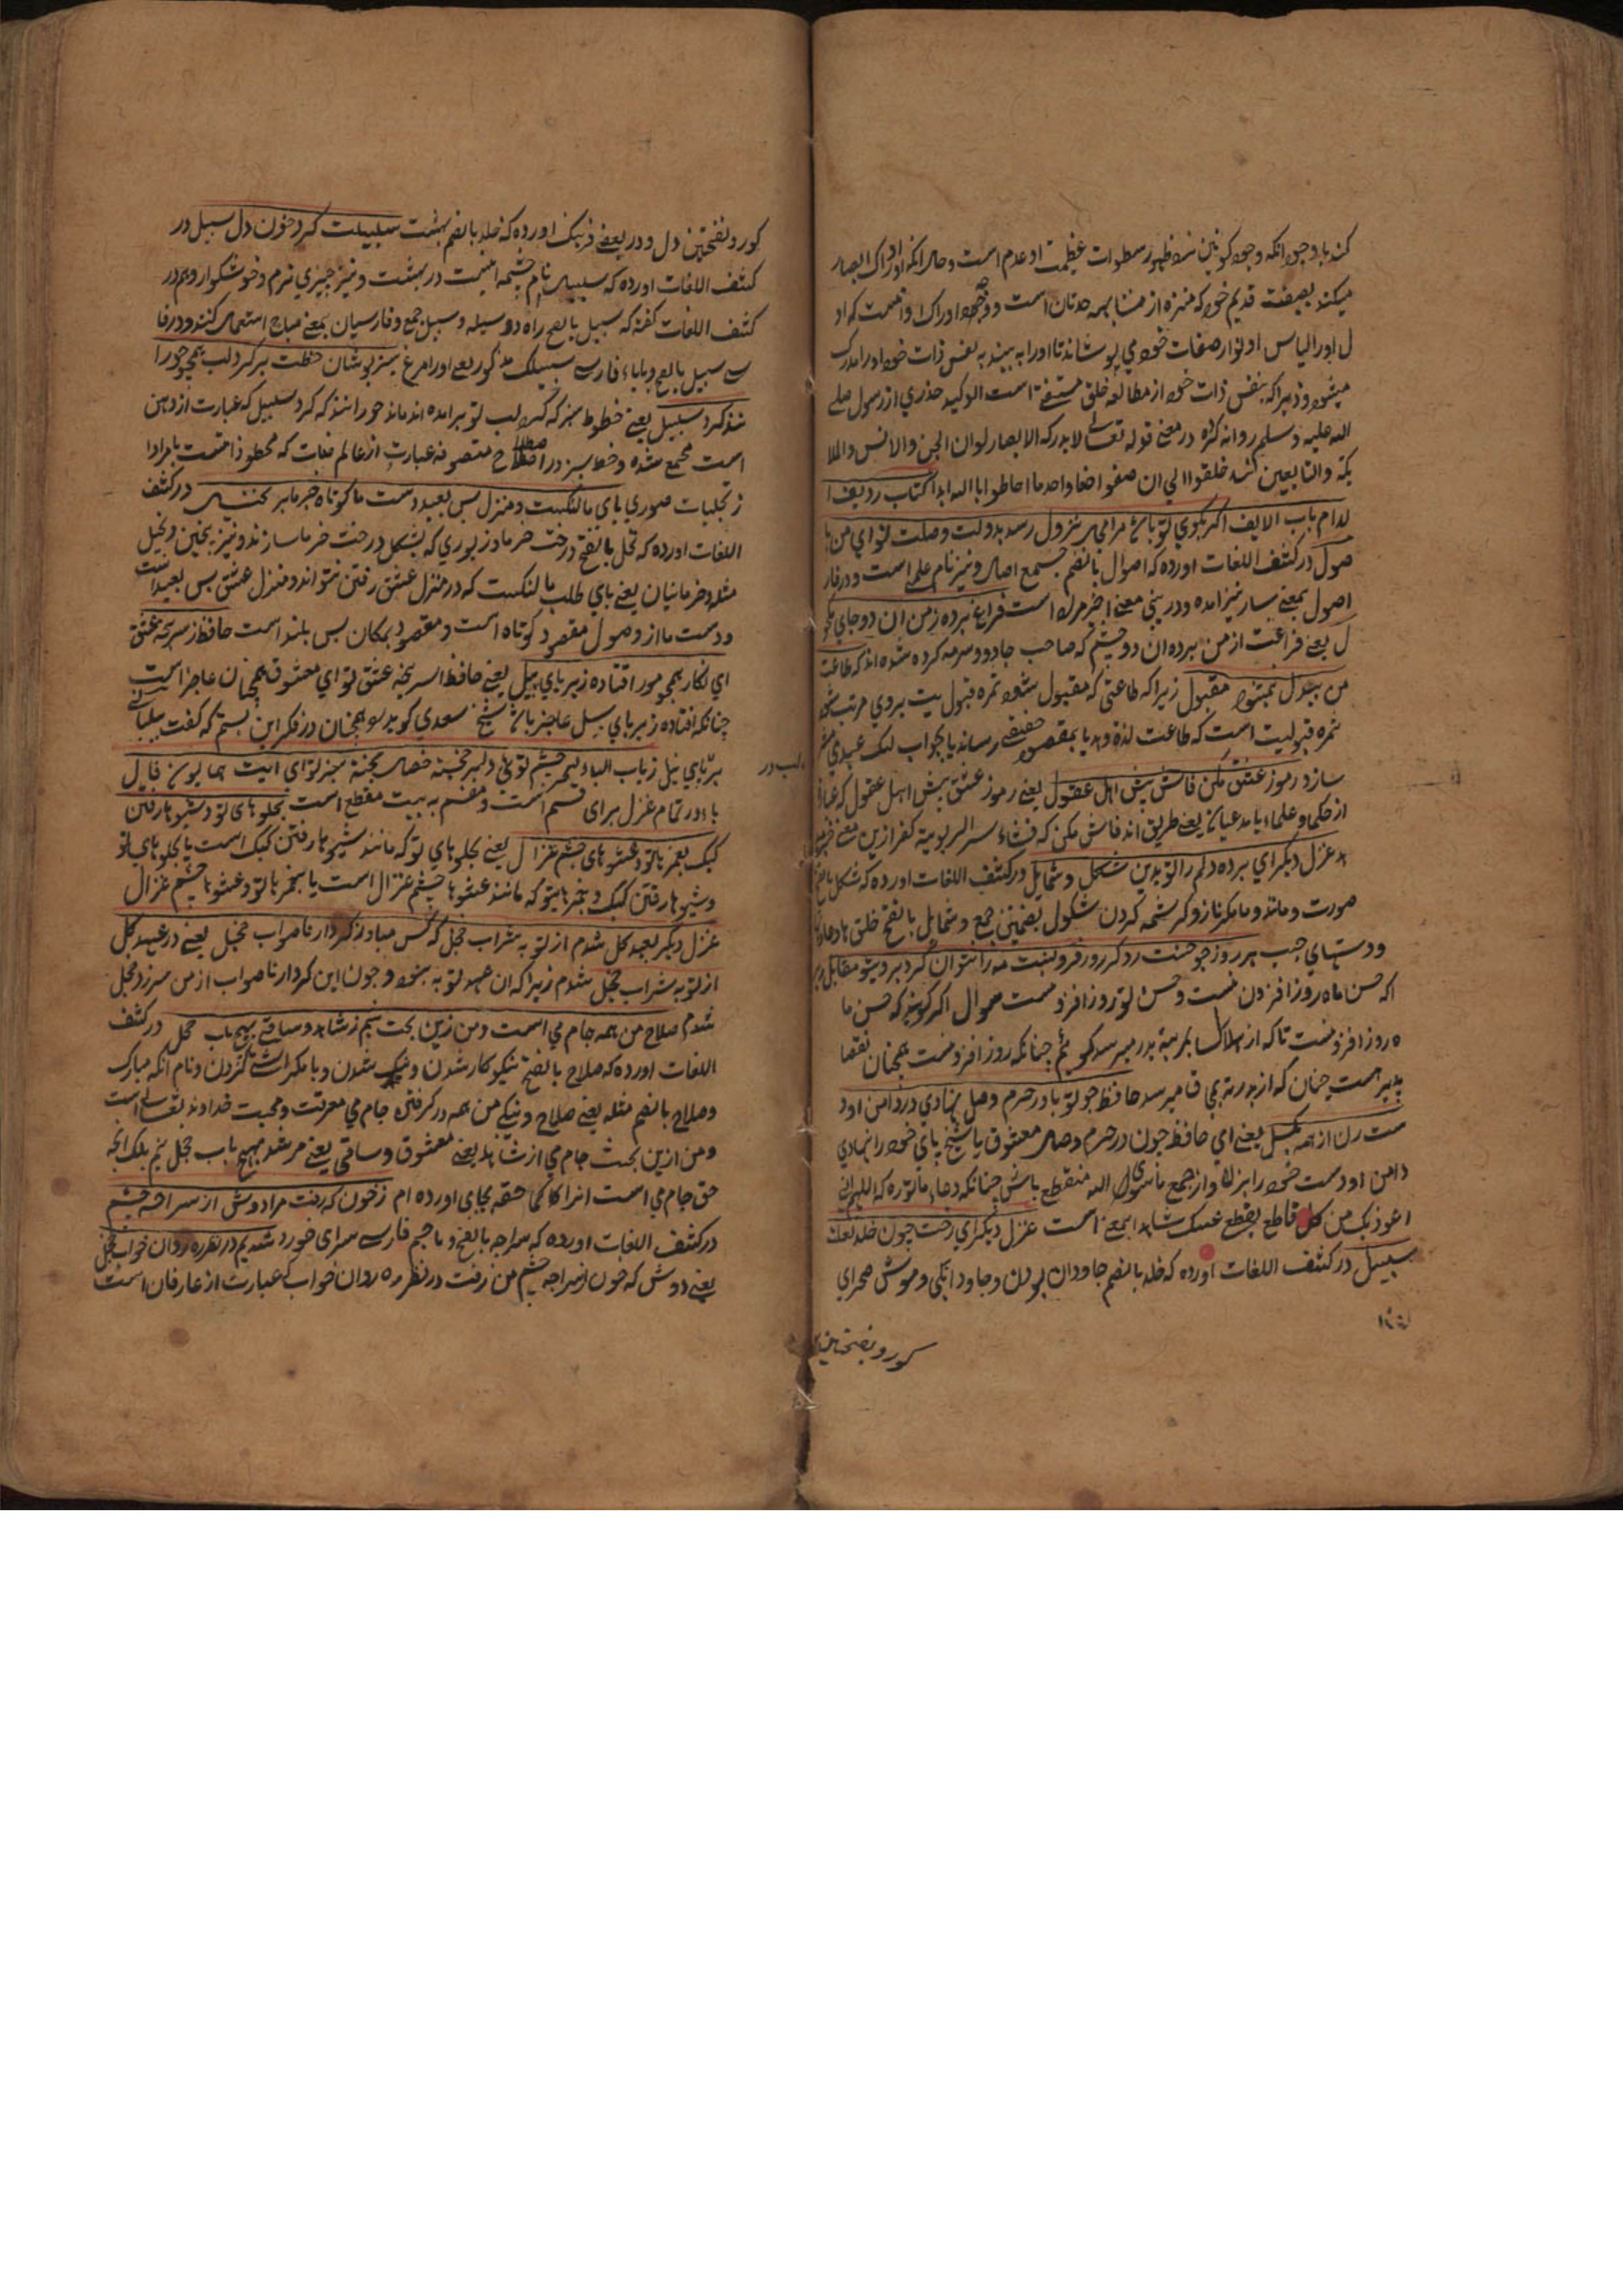 کند با وجود انکه وجود کونین نزد ظهور سطوات عظمت او عدم است و حال انکه او ادراک ابصار
میکند بصفت قدیم خود که منزه از مشابهه حدثان است و وجود ادراک او انست که او
ل اورا لباس از انوار صفات خود می پوشاند تا اورا به بیند به نفس ذات خود اورا مدرک
میشود زیرا که بنفس ذات خود از مطالعه خلق مستغنی است ابو سعید خدری از رسول صلی
الله علیه وسلم روایت کرده در معنی قوله تعالی لا یدرکه الابصار لو ان الجن والانس والملا
یکة والتابعین منذ خلقوا الی ان صفوا صفا واحدا ما احاطوا بالله ابدا کتاب ردیف ا
لدام باب الالف اکر بکوی تو باشد مرا مجال نزول رسد بدولت وصلت نوای من با
صول در کشف اللغات اورده که اصول بالضم جمع اصل و نیز نام علمی است و در فار
اصول بمعنی بسیار نیز امده و درینجا معنی اخیر مراد است فراغ برده ز من ان دو جادوی مکحو
ل یعنی فراغت از من برده ان دو چشم که صاحب جادو و سرمه کرده شده اند که طاعت
من بیدل نمیشود مقبول زیرا که طاعتی که مقبول بشود ثمره قبولیت بروی مرتب شود
ثمره قبولیت است که طاعت لذة دهد یا بمقصود حقیقی رساند یا بجواب لبیک عبدی مشرف
سازد رموز عشق مکن فاش پیش اهل عقول یعنی رموز عشق پیش اهل عقول که عبارت
از حکما و علماء یا مدعیان یعنی طریق اند فاش مکن که افشاء سر الربوبیة کفر ازین معنی خبر مید
هد غزل دیکر ای برده دلم را تو بدین شکل و شمایل در کشف اللغات اورده که شکل بالفتح
صورت و مانند و با مکر ناز و کرشمه کردن شکول بضمتین جمع و شمایل بالفتح خلق ها و عادتها
و دستهای چپ هر روز چو حسنت رد کر روز فزونست مه را نتوان کرد بروی تو مقابل یعنی
اکر حسن ماه روز افزون نیست و حسن تو روز افزونست سوال اکر کویند که حسن ما
ه روز افزونست تا که از هلال بمرتبه بدر میرسد کویم چنانکه روز افزونست همچنان نقصا
پذیر هست چنان که از بدر بمحاق میرسد حافظ چو تو پا در حرم وصل نهادی در دامن او د
ست زن از همه بکسل یعنی ای حافظ چون در حرم وصل معشوق یا شیخ پای خود را نهادی
دامن او دست خود را بزن و از جمیع ماسوی الله منقطع باش چنانکه دعاء ماثوره که اللهم انی
اعوذ بک من کل قاطع یقطع عنک شاهد این معنی است غزل دیکر ای رخت چون خلد لعلت
سلسبیل در کشف اللغات اورده که خلد بالضم جاودان بودن و جاودانکی و موش صحرای
کور و بفتحتین
کور و بفتحتین دل و در بعضی فرهنک اورده که خلد بالضم بهشت سلسبیلت کرد خون دل سبیل در
کشف اللغات اورده که سلسبیل نام چشمه ایست در بهشت و نیز چیزی نرم و خوشکوار و هم در
کشف اللغات کفته که سبیل بالفتح راه و وسیله و سبل جمع و فارسیان بمعنی مباح استعمال کنند و در فا
سی سبیل بالفتح و باباء فارسی سبیلک مذکور یعنی اورا مرغ سبز پوشان خطت بر کرد لب همچو حورا
نند کرد سلسبیل یعنی خطوط سبز که کرد لب تو برامده اند مانند حورانند که کرد سلسبیل که عبارت از دهن
است مجمع شده و خط سبز در اصطلاح متصوفه عبارت از عالم غیبات که محظوذات است یا مراد ا
ز تجلیات صوری پای ما لنکست و منزل بس بعید دست ما کوتاه و خرما بر نخیل در کشف
اللغات اورده که نخل بالفتح درخت خرما و زیوری که بشکل درخت خرما سازند و نیز بیختن و نخیل
مثله و خرماستان یعنی پای طلب ما لنکست که در منزل عشق رفتن نتواند و منزل عشق بس بعید است
و دست ما از وصول مقصود کوتاه است و مقصود بمکان بس بلند است حافظ از سرپنجه عشق
ای نکار همچو مور افتاده زیر پای پیل یعنی حافظ از سرپنجه عشق تو ای معشوق همچنان عاجز است
چنانکه افتاده زیر پای پیل عاجز باشد شیخ سعدی کوید همچنان در فکر این بیتم که کفت پیلبانی
بر لب دریای نیل ز باب الباء لیلی چشم توئی دلبر خجسته خصال بخجسته خبر توای ایت همایون فال
باء در تمام غزل برای قسم است و مقسم به بیت مقطع است بجلوهای تو و شیوها رفتن
کبک بغمز با تو و عشوهای چشم غزال یعنی بجلوهای تو که مانند شیوها رفتن کبک است یا بجلوهای تو
و شیوها رفتن کبک و بغمزهایتو که مانند عشوها چشم غزال است یا بغمز با تو و عشوها چشم غزال
غزل دیکر بعهد کل شدم از توبه شراب خجل که کس مباد ز کردار ناصواب خجل یعنی در عهد کل
از توبه شراب خجل شدم زیرا که ان عهد توبه نبود و چون این کردار ناصواب از من سرزد خجل
شدم صلاح من همه جام می است و من زین بحث نیم ز شاهد و ساقی بهیچ باب خجل در کشف
اللغات اورده که صلاح بالفتح نیکوکار شدن و نیک شدن و با مکر اشتی کردن و نام انکه مبارک
و صلاح بالضم مثله یعنی صلاح و نیکی من همه در کرفتن جام می معرفت و محبت خداوند تعالی است
و من ازین بحث جام می از شاهد یعنی معشوق و ساقی یعنی مرشد بهیچ باب خجل نیم بلک انچه
حق جام می است انرا کما حقه بجای اورده ام ز خون که رفت مرا دوش از سراچه چشم
در کشف اللغات اورده که سراچه بالفتح و با جیم فارسی سرای خورد شدیم در نظر ره روان خواب خجل
یعنی دوش که خون از سراچه چشم من رفت در نظر ره روان خواب که عبارت از عارفان است